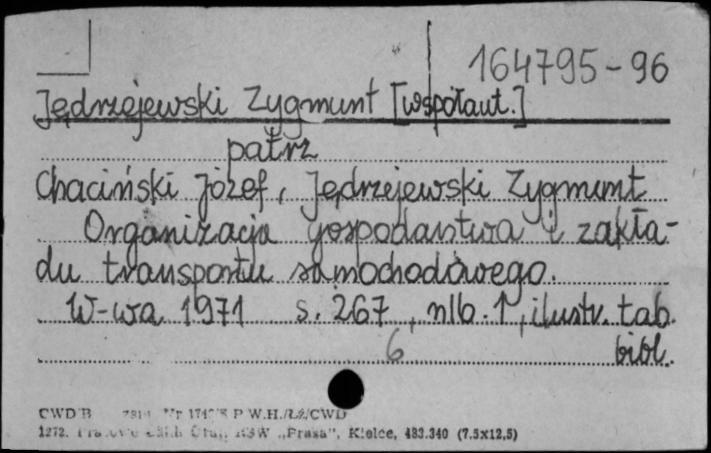 164795-96
Jędrzejewski Zygmunt [współaut.]
patrz
Chaciński Józef, Jędrzejewski Zygmunt
Organizacja gospodarstwa i zakła-
du transportu samochodowego.
W-wa 1971 s. 267, nlb. 1, ilustr. tab.
6 bibl.
CWD B P.W.H./Łź/CWD
1272. RSW „Prasa", Kielce, 483.340 (7.5x12,5)